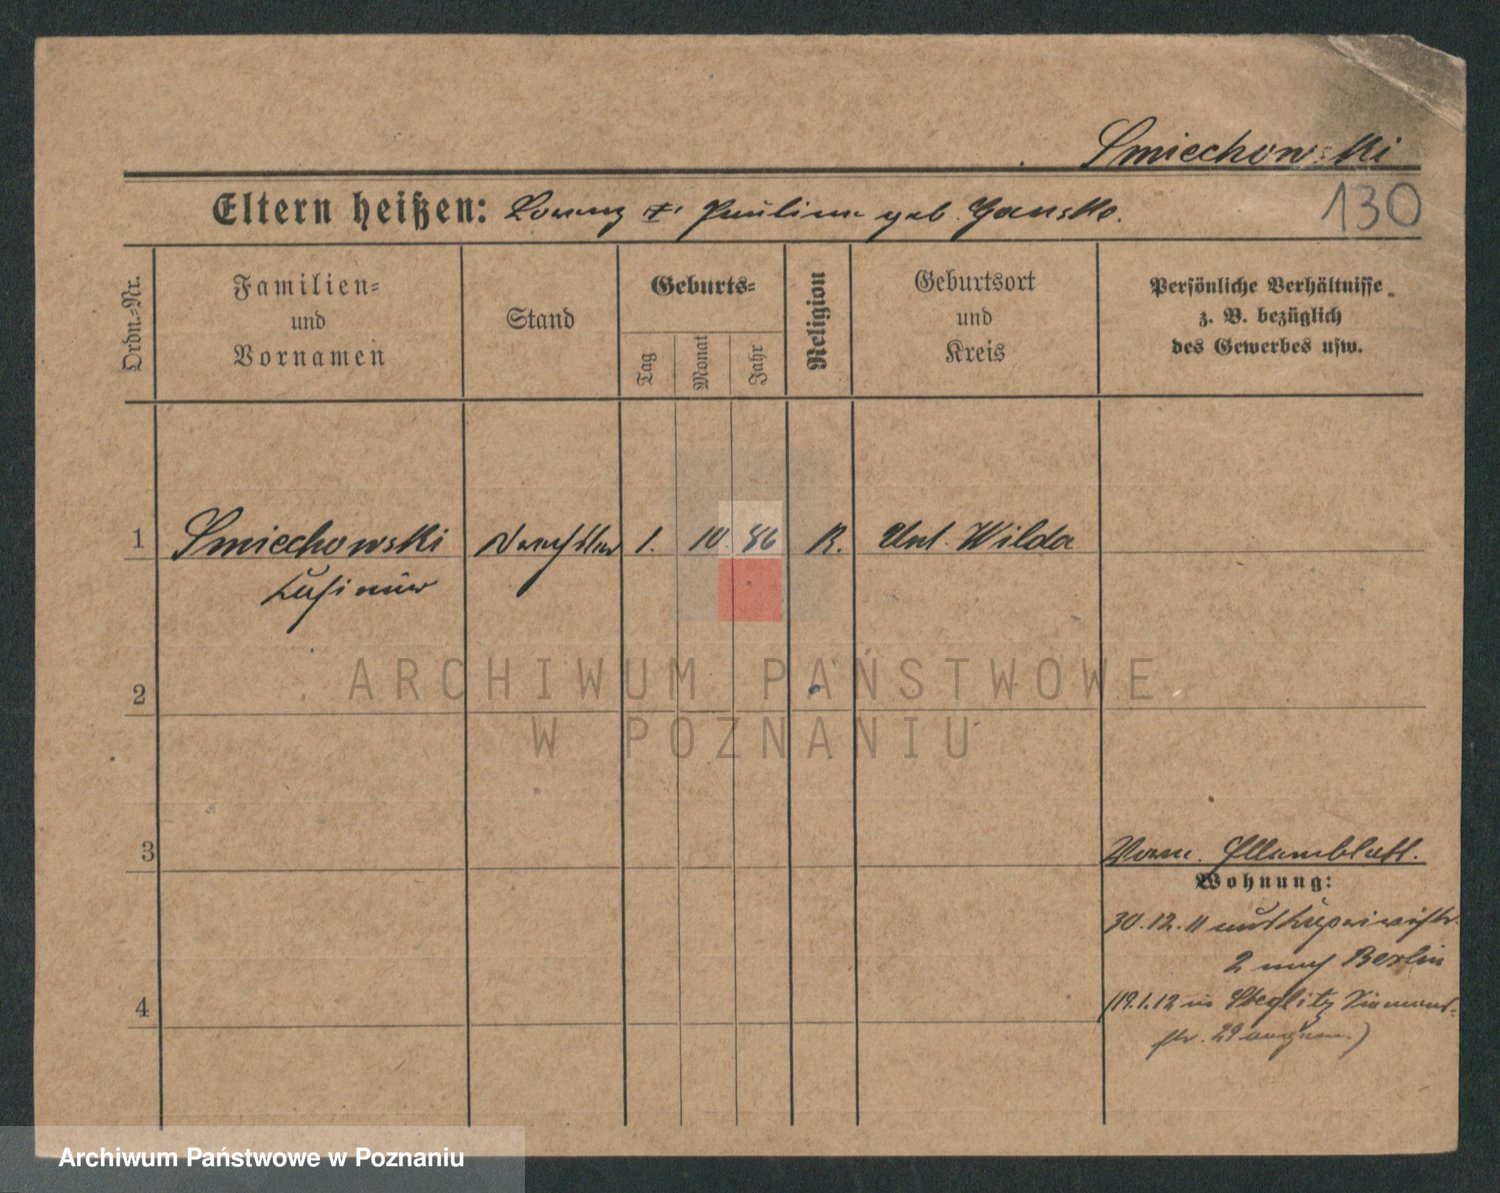 Smiechowski
130
Eltern heißen: Lorenz u. Pauline geb. Ganske.
Ordn.-Nr.
Familien-
und
Vornamen
Stand
Geburts-
Tag
Monat
Jahr
Religion
Geburtsort
und
Kreis
Persönliche Verhältnisse
z. B. bezüglich
des Gewerbes usw.
1 Smiechowski 1. 10. 86 K. Unt. Wilda
Kasimir
ARCHIWUM PAŃSTWOWE
2
W POZNANIU
3
Elternblatt.
Wohnung:
30.12.11
2 nach Berlin
4
(19.1.12 in Steglitz
str. 29 angem.)
Archiwum Państwowe w Poznaniu